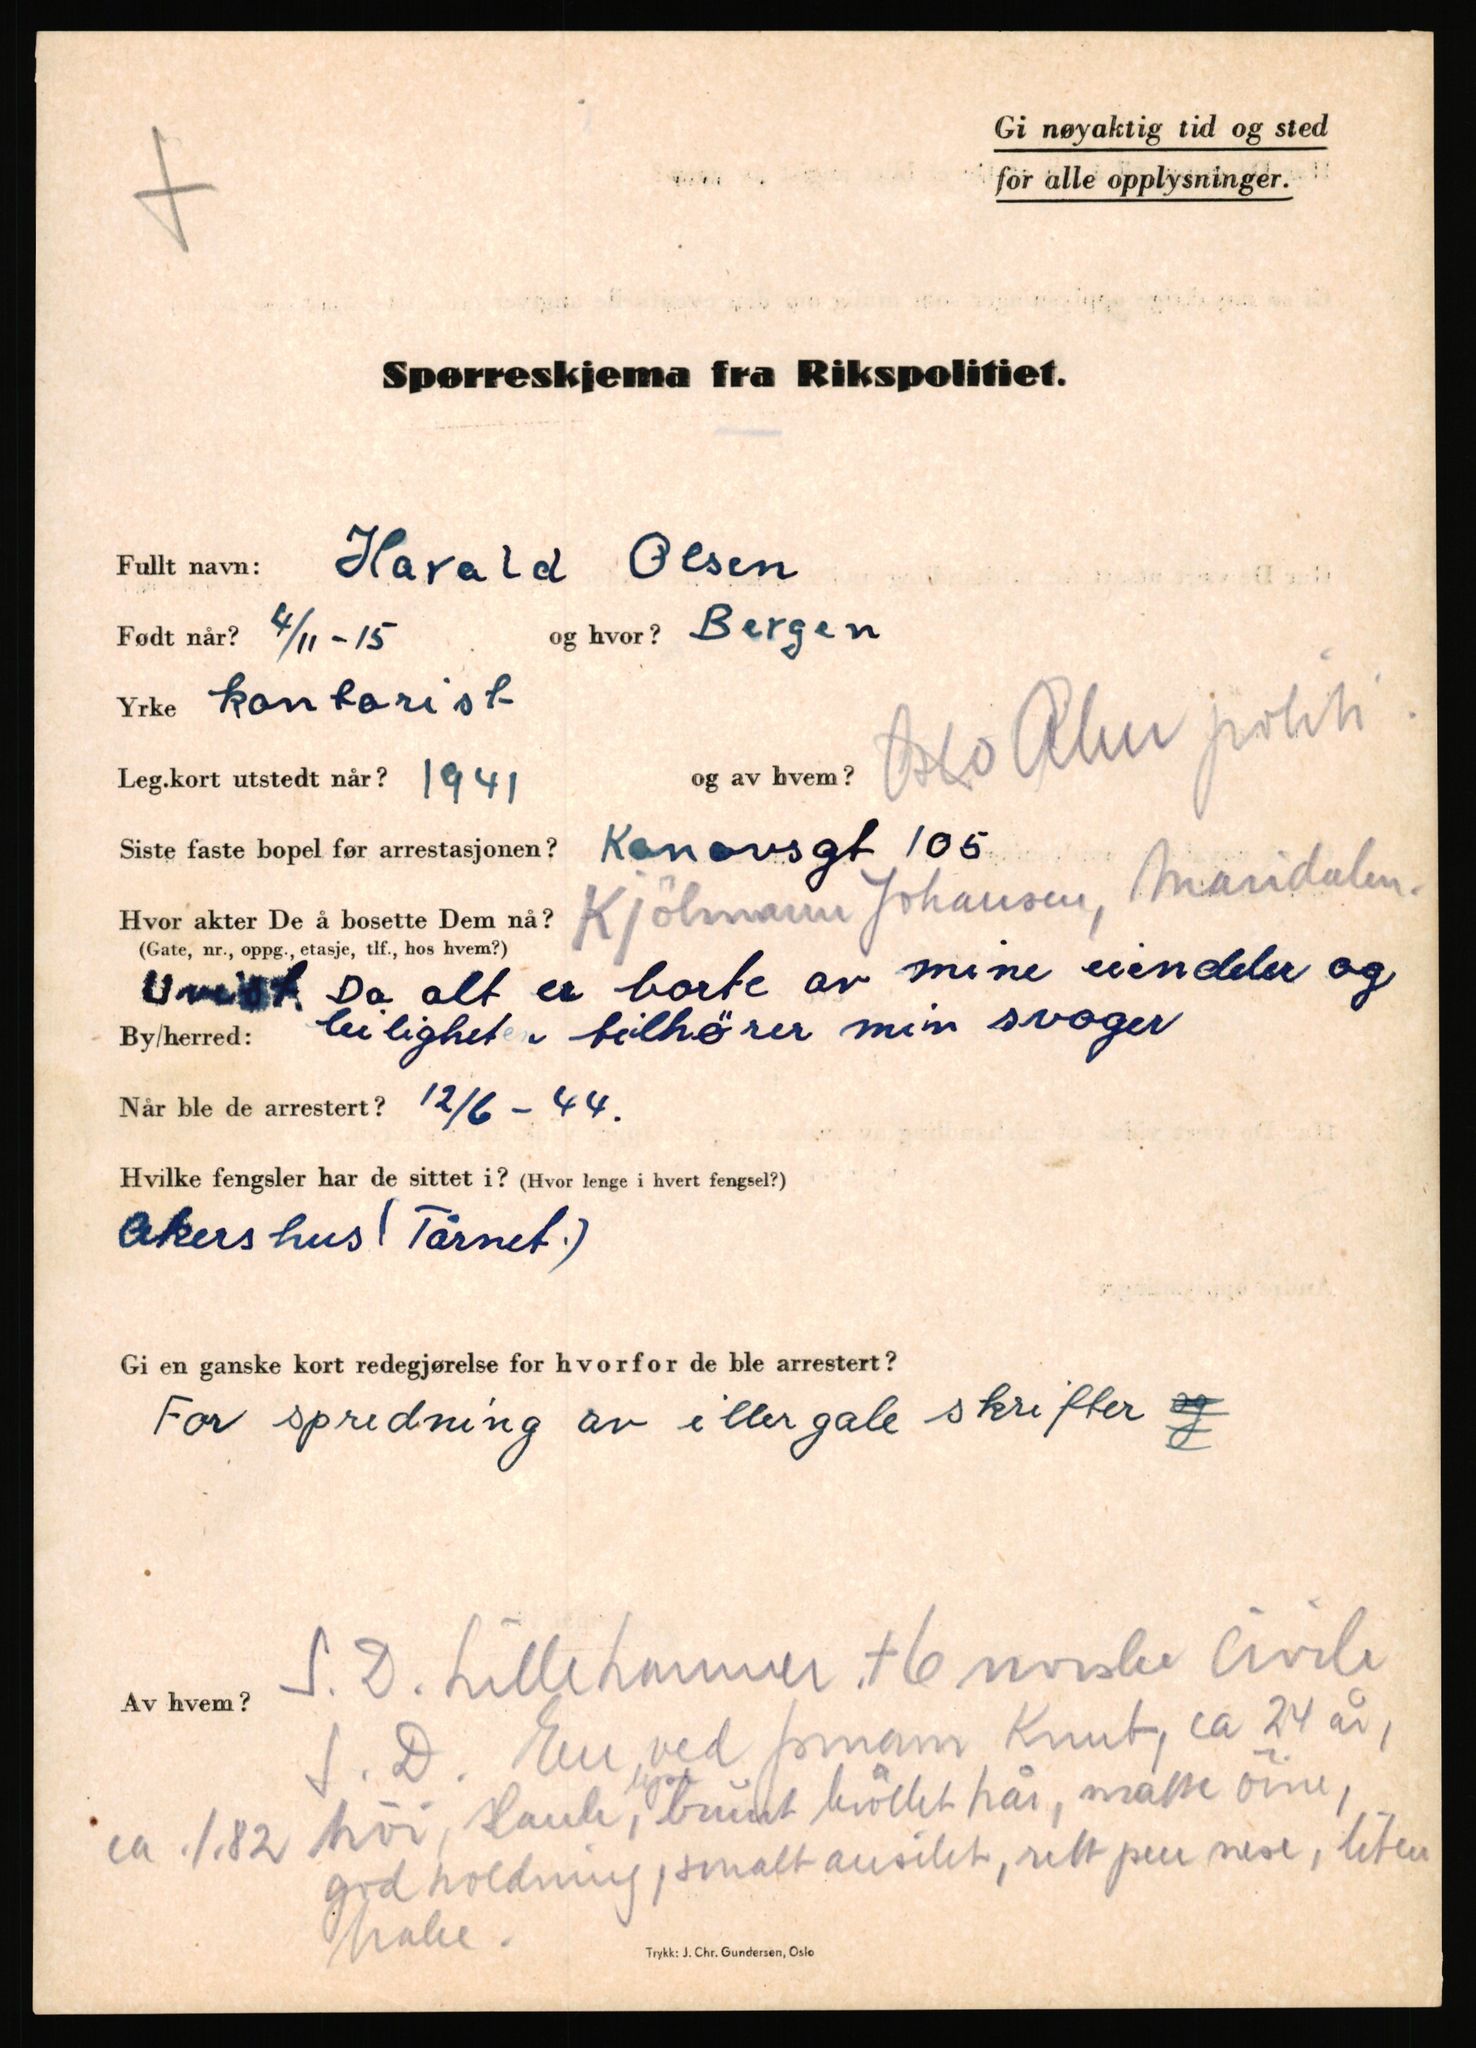 Gi nøyaktig tid og sted
for alle opplysninger.
Spørreskjema fra Rikspolitiet.
Fullt navn: Harald Olsen
Født når? 4/11-15 og hvor? Bergen
Yrke kontorist
Leg.kort utstedt når? 1941 og av hvem? Oslo politi
Siste faste bopel før arrestasjonen? Konowsgt 105
Hvor akter De å bosette Dem nå? Kjölmann Johansen, Maridalen.
(Gate, nr., oppg., etasje, tlf., hos hvem?)
Uvist. Da alt er borte av mine eiendeler og
By/herred: leiligheten tilhører min svoger
Når ble de arrestert? 12/6 - 44.
Hvilke fengsler har de sittet i? (Hvor lenge i hvert fengsel?)
Akershus (Tårnet.)
Gi en ganske kort redegjørelse for hvorfor de ble arrestert?
For spredning av illergale skrifter og
Av hvem? S. D. Lillehammer + 6 norske Civile
S. D. En, ved fornavn Knut, ca 24 år,
ca. 1.82 höi, slank, brunt kröllet hår, mörke öine,
god holdning, smalt ansikt, rett pen nese, liten
hake.
Trykk: J. Chr. Gundersen, Oslo